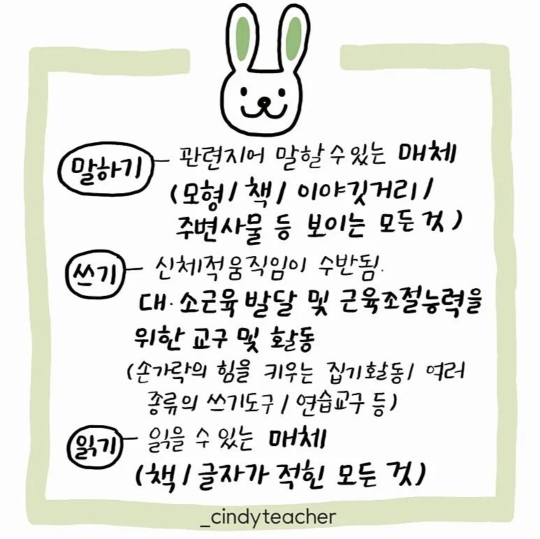 말하기 - 관련지어 말할 수 있는 매체
(모형 / 책 / 이야깃거리 /
주변사물 등 보이는 모든 것)
쓰기 - 신체적움직임이 수반됨.
대·소근육 발달 및 근육조절능력을
위한 교구 및 활동
(손가락의 힘을 키우는 집기활동 / 여러
종류의 쓰기도구 / 연습교구 등)
읽기 - 읽을 수 있는 매체
(책 / 글자가 적힌 모든 것)
_cindyteacher